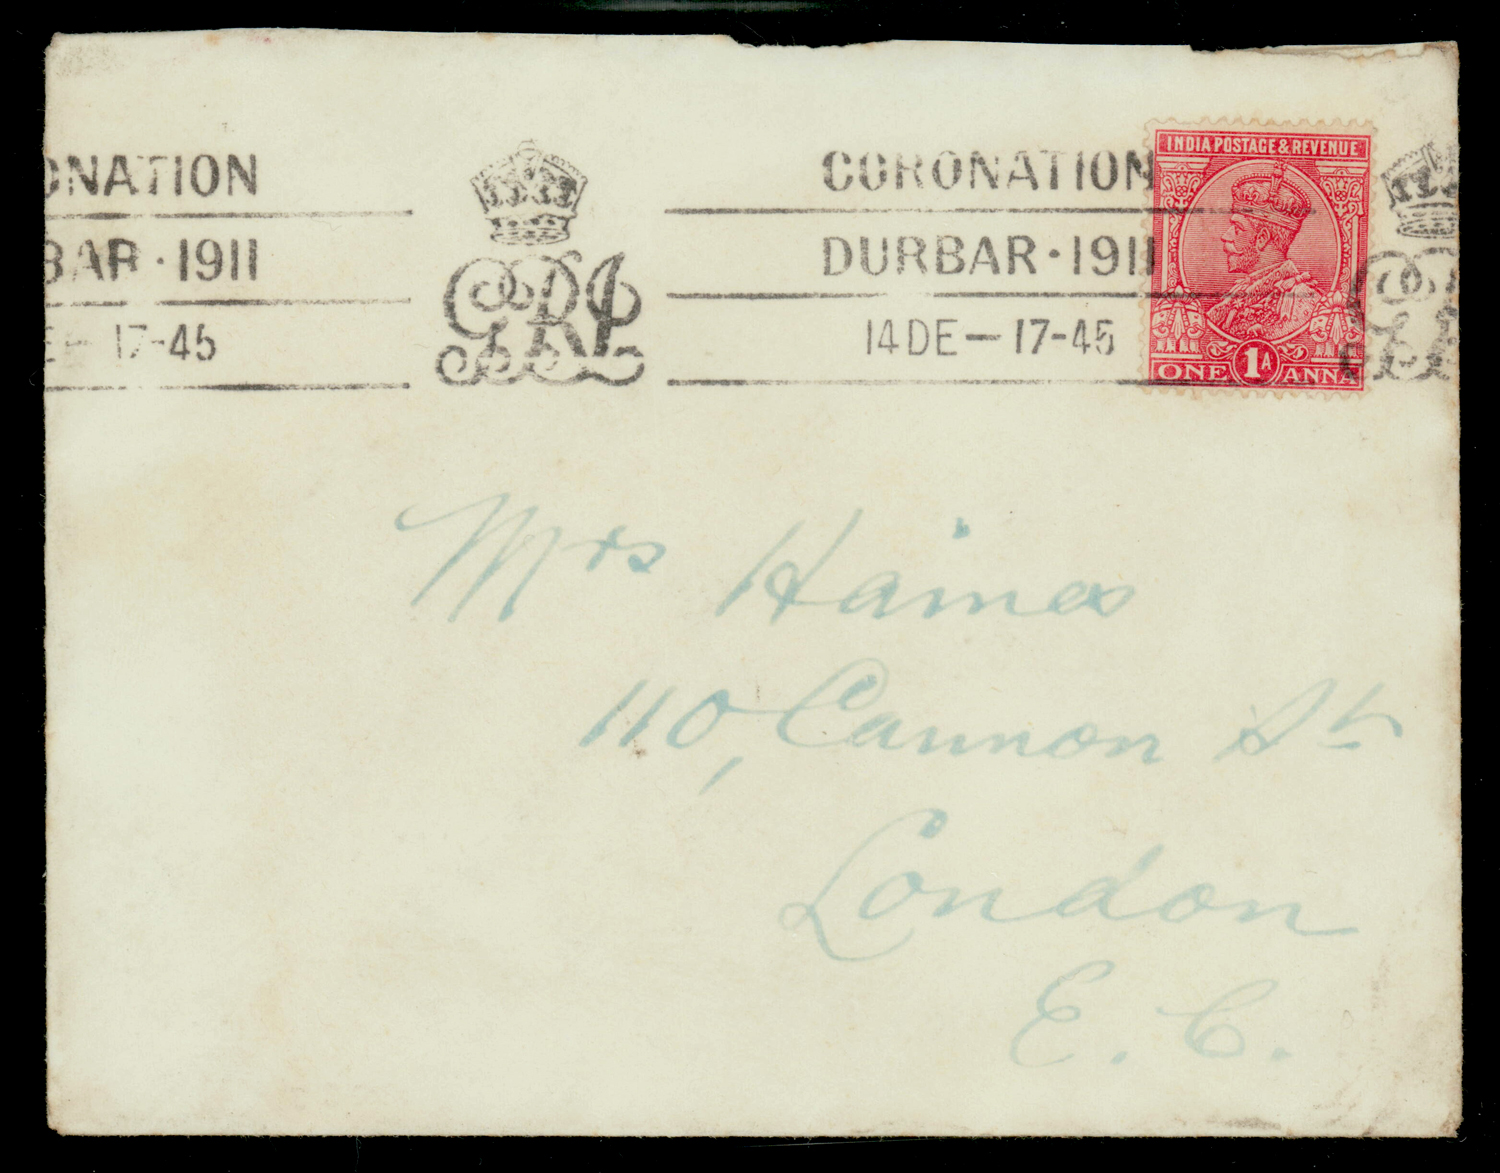 ONATION
BAR · 1911
17-45
GRI
CORONATION
DURBAR · 1911
14 DE — 17-45
INDIA POSTAGE & REVENUE
1A
ONE ANNA
Mrs Haines
110, Cannon St
London
E. C.